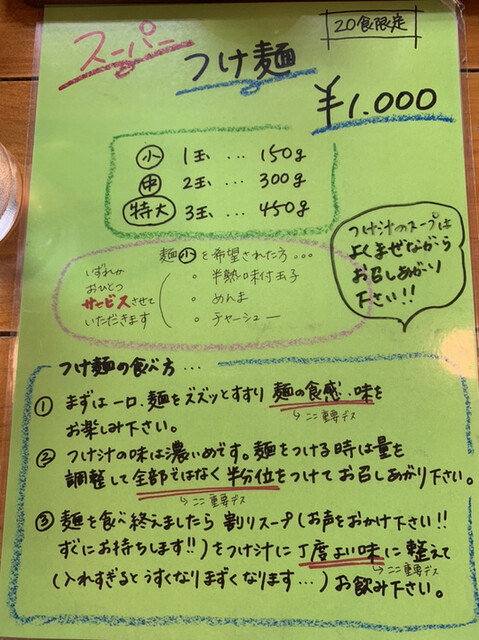 20食限定
スーパー
つけ麺
¥1.000
小 1玉 … 150g
中 2玉 … 300g
特大 3玉 … 450g
麺小を希望された方…
いずれか
おひとつ
サービスさせて
いただきます
。半熟味付玉子
。めんま
。チャーシュー
つけ汁のスープは
よくまぜながら
お召しあがり
下さい!!
つけ麺の食べ方…
① まずは一口、麺をズズッとすすり 麺の食感・味を
ここ重要デス
お楽しみ下さい。
② つけ汁の味は濃いめです。麺をつける時は量を
調整して全部ではなく半分位をつけてお召しあがり下さい。
ここ重要デス
③ 麺を食べ終えましたら 割りスープ(お声をおかけ下さい!!
すぐにお持ちします!!)をつけ汁に丁度よい味に整えて
ここ重要デス
(入れすぎるとうすくなりまずくなります…)お飲み下さい。